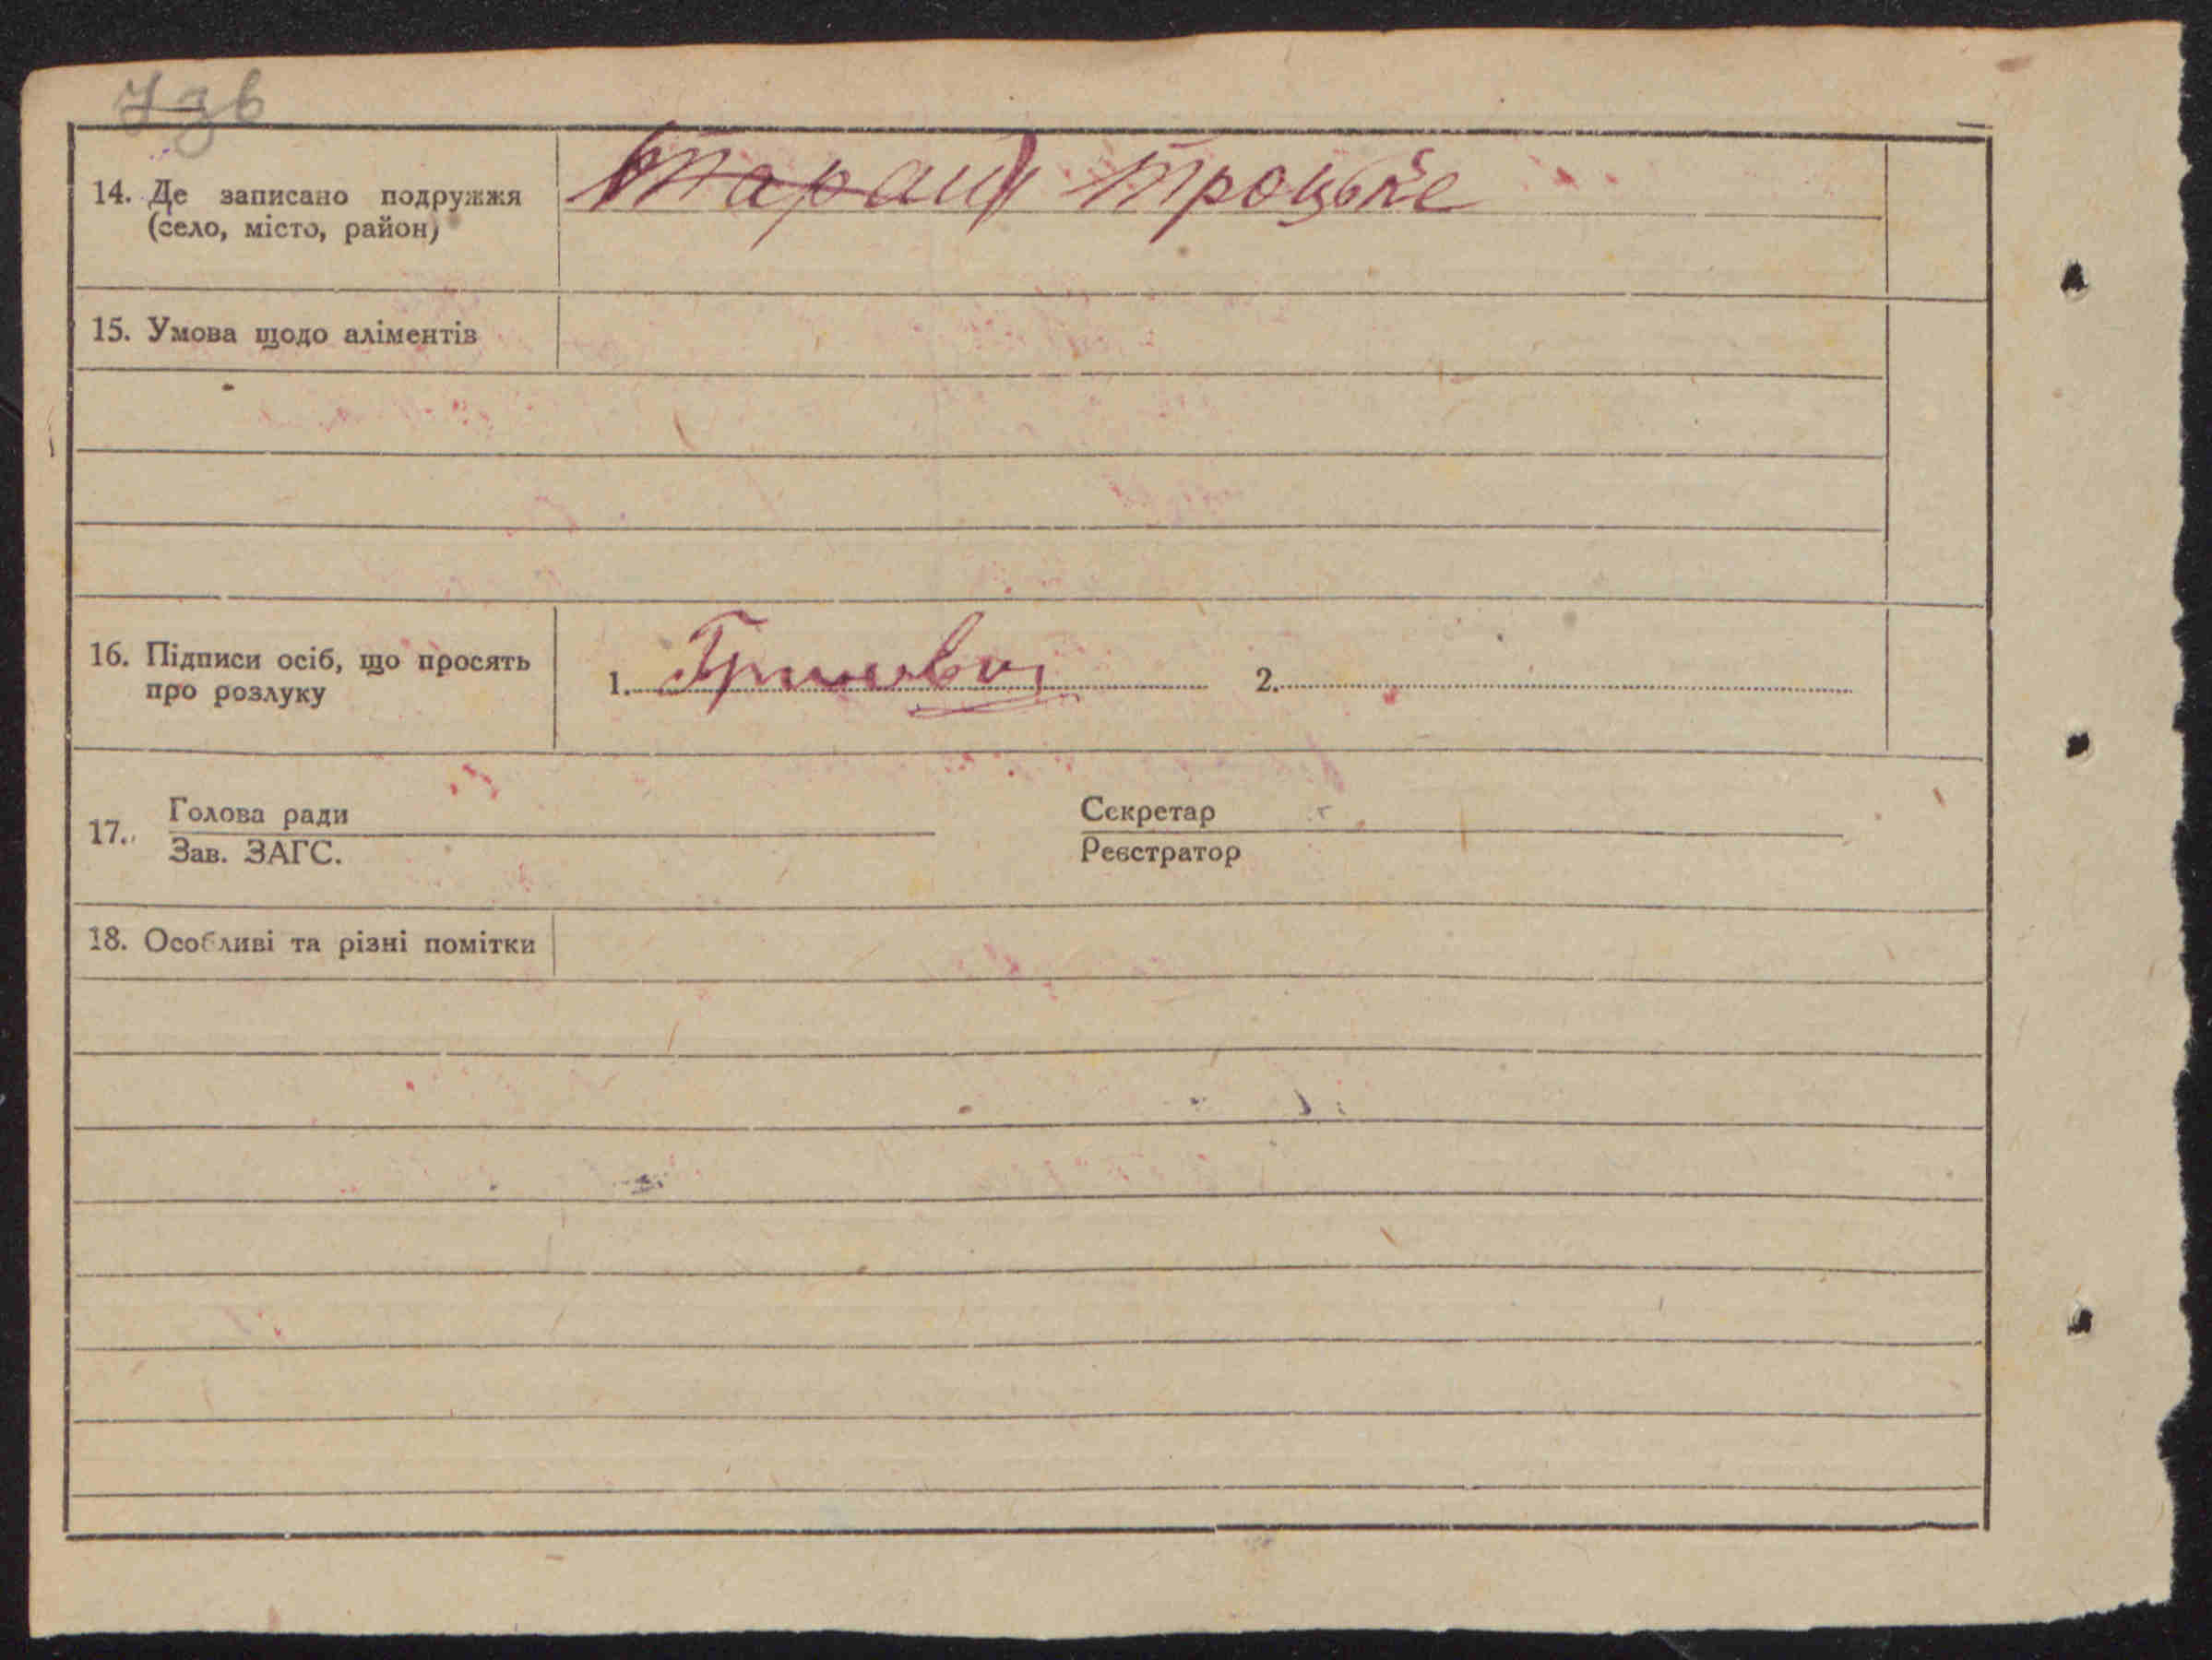 7зв
14. Де записано подружжя
(село, місто, район)
Троцьке
15. Умова щодо аліментів
16. Підписи осіб, що просять
про розлуку
1.
2.
17. Голова ради
Зав. ЗАГС.
Секретар
Реєстратор
18. Особливі та різні помітки